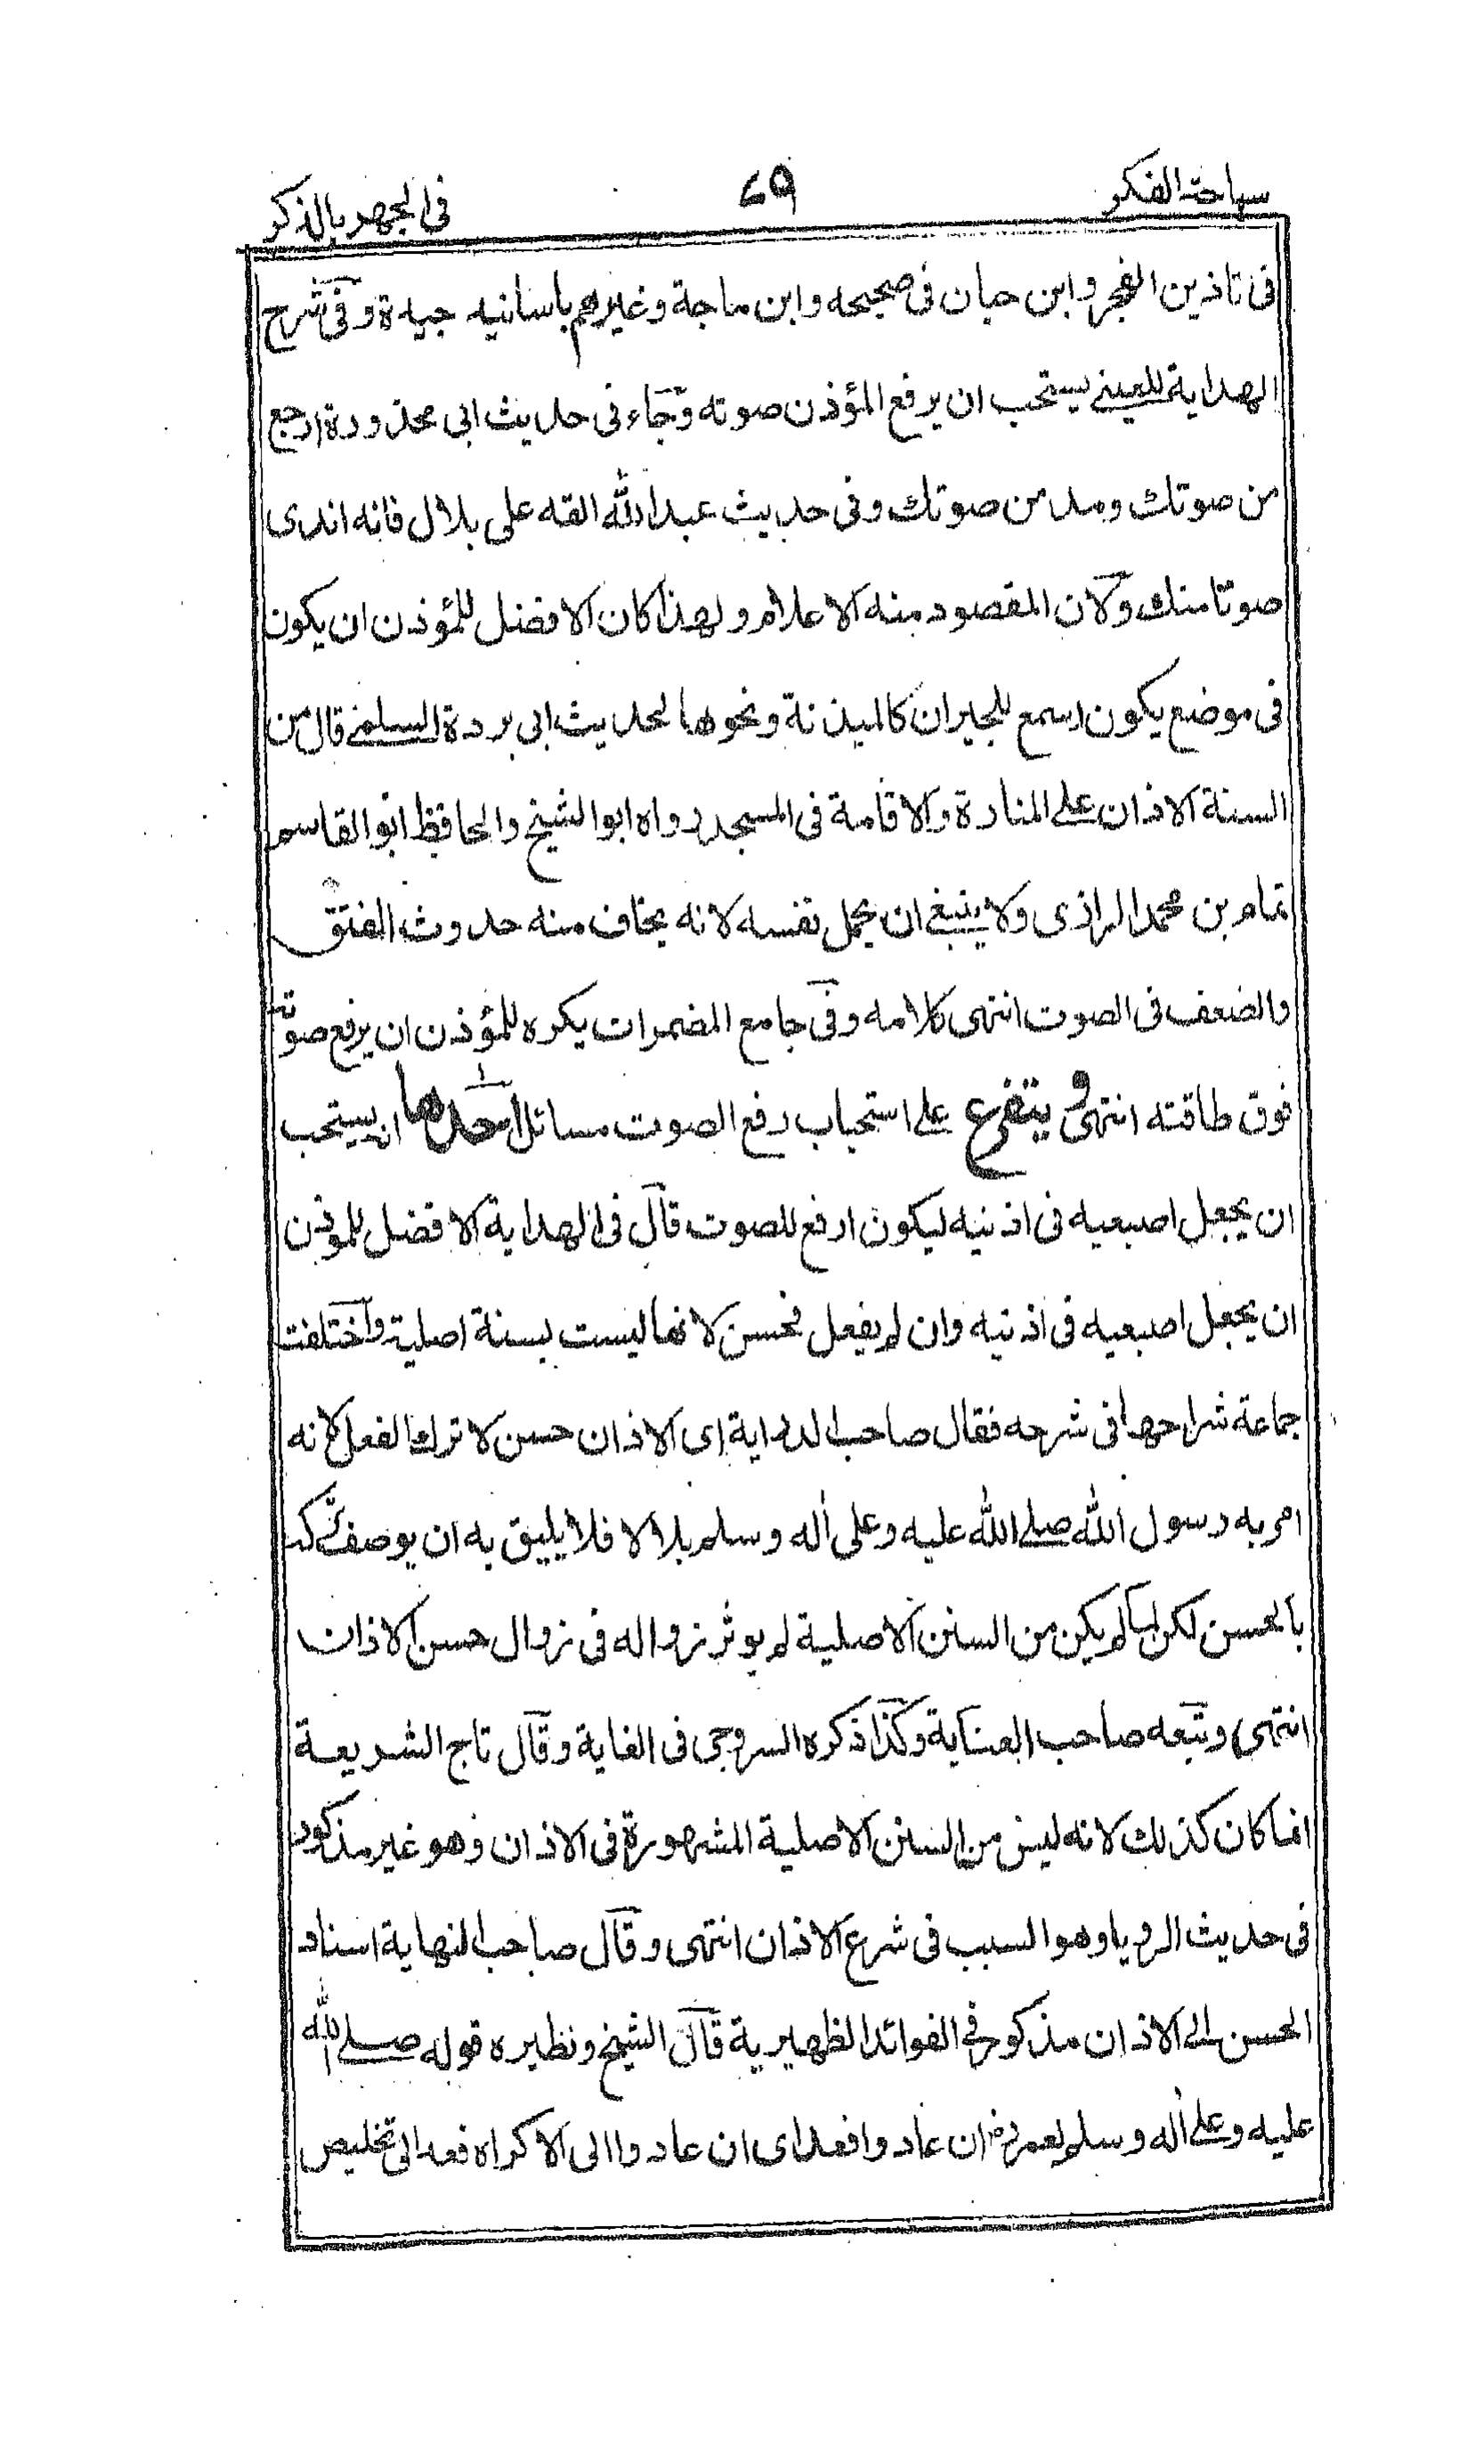 سباحة الفكر ٤٩ فى الجهر بالذكر
فى تاذين الفجر وابن حبان فى صحيحه وابن ماجة وغيرهم باسانيد جيدة وفى شرح
الهداية للعينے يستحب ان يرفع المؤذن صوته وجاء فى حديث ابى محذورة ارجع
من صوتك ومد من صوتك وفى حديث عبد الله القه على بلال فانه اندى
صوتا منك ولان المقصود منه الاعلام ولهذا كان الافضل للمؤذن ان يكون
فى موضع يكون اسمع للجيران كالميذنة ونحوها لحديث ابى بردة السلمے قال من
السنة الاذان علے المنارة والاقامة فى المسجد رواه ابو الشيخ والحافظ ابو القاسم
تمام بن محمد الرازى ولا ينبغے ان يحمل نفسه لانه يخاف منه حدوث الفتق
والضعف فى الصوت انتهى كلامه وفى جامع المضمرات يكره للمؤذن ان يرفع صوته
فوق طاقته انتهى ويتفرع علے استحباب رفع الصوت مسائل احدها انه يستحب
ان يجعل اصبعيه فى اذنيه ليكون ارفع للصوت قال فى الهداية الافضل للموذن
ان يجعل اصبعيه فى اذنيه وان لم يفعل فحسن لانها ليست بسنة اصلية واختلفت
جماعة شراحها فى شرحه فقال صاحب الدراية اى الاذان حسن لا ترك الفعل لانه
امر به رسول الله صلے الله عليه وعلى اله وسلم بلالا فلا يليق به ان يوصف تركه
بالحسن لكن لما لم يكن من السنن الاصلية لم يوثر زواله فى زوال حسن الاذان
انتهى وتبعه صاحب العناية وكذا ذكره السروجى فى الغاية وقال تاج الشريعة
انما كان كذلك لانه ليس من السنن الاصلية المشهورة فى الاذان وهو غير مذكور
فى حديث الرويا وهو السبب فى شرع الاذان انتهى وقال صاحب النهاية اسناد
الحسن الے الاذان مذكور فى الفوائد الظهيرية قال الشيخ ونظيره قوله صلے الله
عليه وعلے اله وسلم لعمر رض ان عادوا فعد اى ان عادوا الى الاكراه فعد الى تخليص